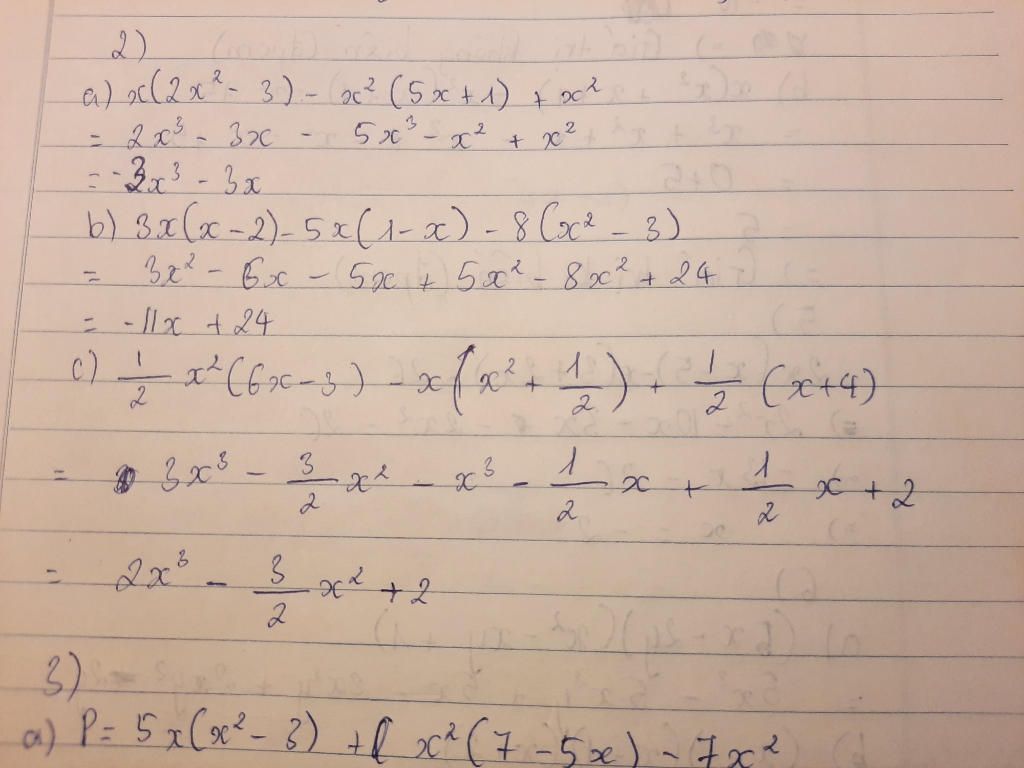 2)
a) x(2x² - 3) - x² (5x+1) + x²
= 2x³ - 3x - 5x³ - x² + x²
= -3x³ - 3x
b) 3x(x-2) - 5x(1-x) - 8(x² - 3)
= 3x² - 6x - 5x + 5x² - 8x² + 24
= -11x + 24
c) 1/2 x² (6x-3) - x(x² + 1/2) + 1/2 (x+4)
= 3x³ - 3/2 x² - x³ - 1/2 x + 1/2 x + 2
= 2x³ - 3/2 x² + 2
3)
a) P = 5x(x² - 3) + x² (7 - 5x) - 7x²